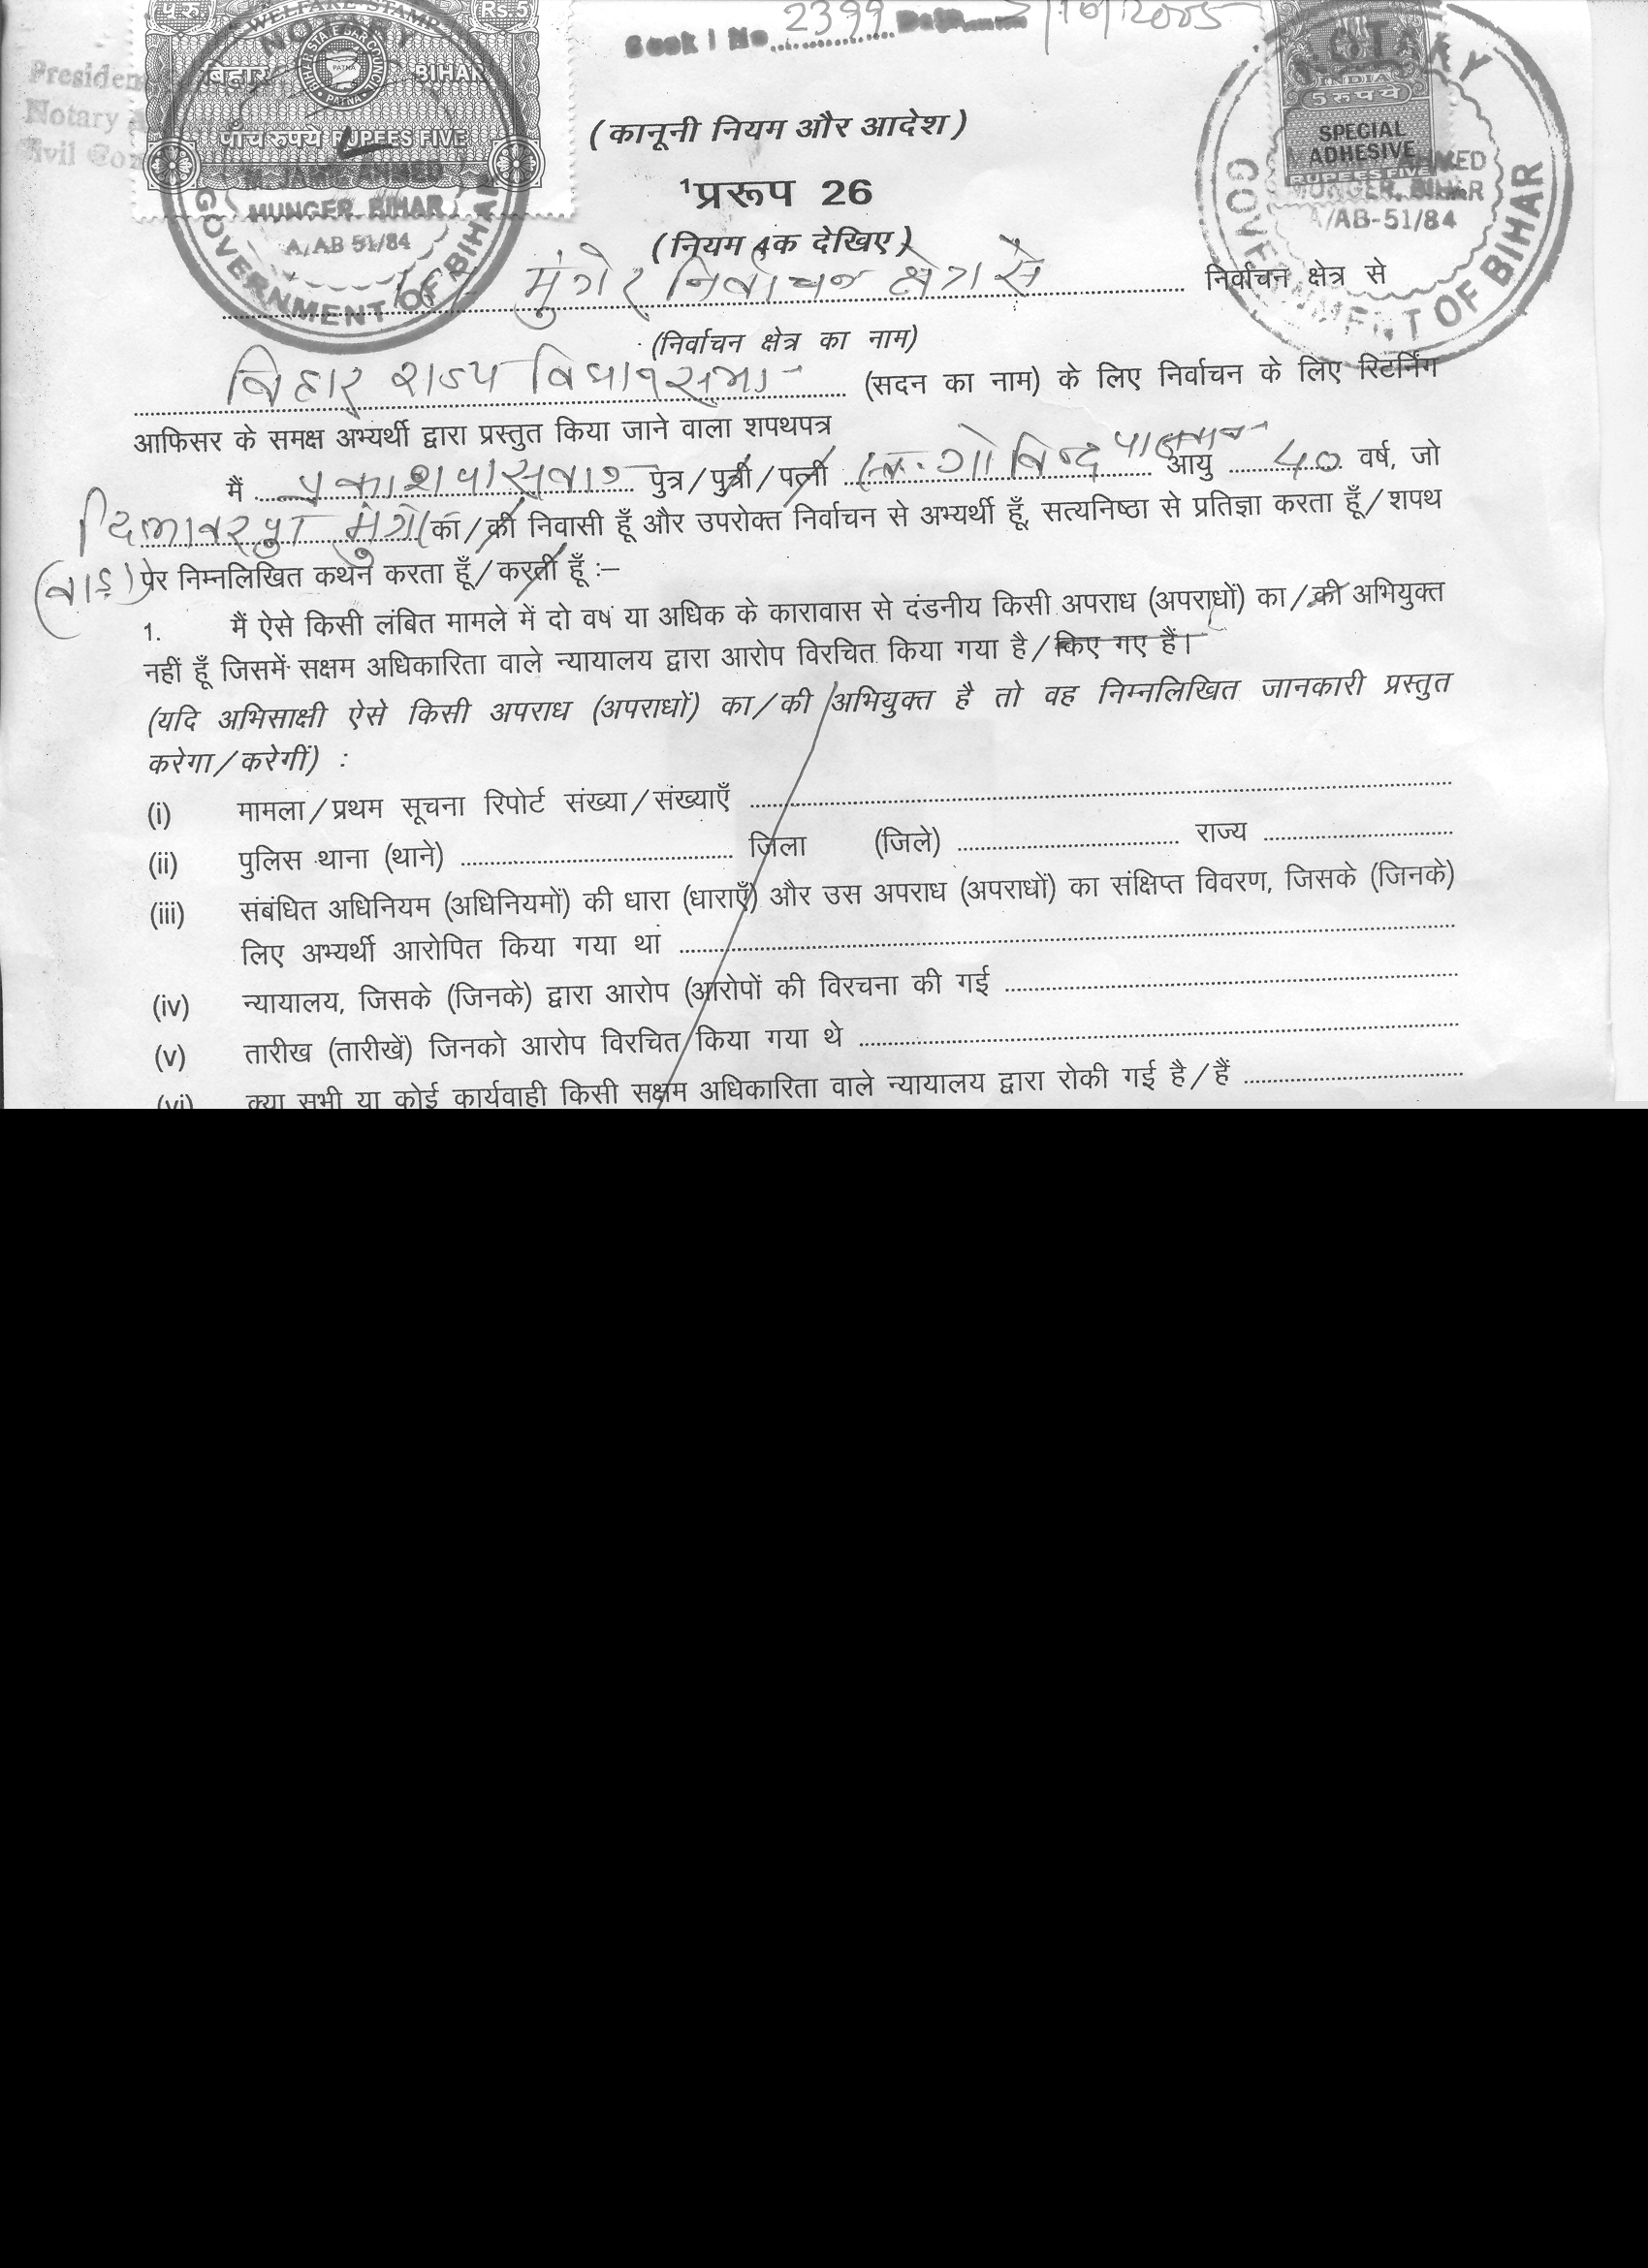 प.रु. WELFARE STAMP Rs.5
NOTARY
बिहार BIHAR STATE BAR COUNCIL PATNA BIHAR
पाँच रुपये RUPEES FIVE
M. JAMIL AHMED
MUNGER, BIHAR
A/AB 51/84
GOVERNMENT OF BIHAR
Presiden
Notary A
Civil Cou
Book I No 2399 Date /10/2005
NOTARY
INDIA
5 रुपये
SPECIAL
ADHESIVE
RUPEES FIVE
AHMED
MUNGER, BIHAR
A/AB-51/84
GOVERNMENT OF BIHAR
(कानूनी नियम और आदेश)
¹प्ररूप 26
(नियम 4क देखिए)
मुंगेर निर्वाचन क्षेत्र से निर्वाचन क्षेत्र से
(निर्वाचन क्षेत्र का नाम)
बिहार राज्य विधान सभा (सदन का नाम) के लिए निर्वाचन के लिए रिटर्निंग
आफिसर के समक्ष अभ्यर्थी द्वारा प्रस्तुत किया जाने वाला शपथपत्र
मैं प्रकाश पासवान पुत्र/पुत्री/पत्नी स्व. गोबिन्द पासवान आयु 40 वर्ष, जो
दिलावरपुर मुंगेर का/की निवासी हूँ और उपरोक्त निर्वाचन से अभ्यर्थी हूँ, सत्यनिष्ठा से प्रतिज्ञा करता हूँ/शपथ
पर निम्नलिखित कथन करता हूँ/करती हूँ :–
1. मैं ऐसे किसी लंबित मामले में दो वर्ष या अधिक के कारावास से दंडनीय किसी अपराध (अपराधों) का/की अभियुक्त
नहीं हूँ जिसमें सक्षम अधिकारिता वाले न्यायालय द्वारा आरोप विरचित किया गया है/किए गए हैं।
(यदि अभिसाक्षी ऐसे किसी अपराध (अपराधों) का/की अभियुक्त है तो वह निम्नलिखित जानकारी प्रस्तुत
करेगा/करेगीं) :
(i) मामला/प्रथम सूचना रिपोर्ट संख्या/संख्याएँ
(ii) पुलिस थाना (थाने) जिला (जिले) राज्य
(iii) संबंधित अधिनियम (अधिनियमों) की धारा (धाराएँ) और उस अपराध (अपराधों) का संक्षिप्त विवरण, जिसके (जिनके)
लिए अभ्यर्थी आरोपित किया गया था
(iv) न्यायालय, जिसके (जिनके) द्वारा आरोप (आरोपों की विरचना की गई
(v) तारीख (तारीखें) जिनको आरोप विरचित किया गया थे
(vi) क्या सभी या कोई कार्यवाही किसी सक्षम अधिकारिता वाले न्यायालय द्वारा रोकी गई है/हैं